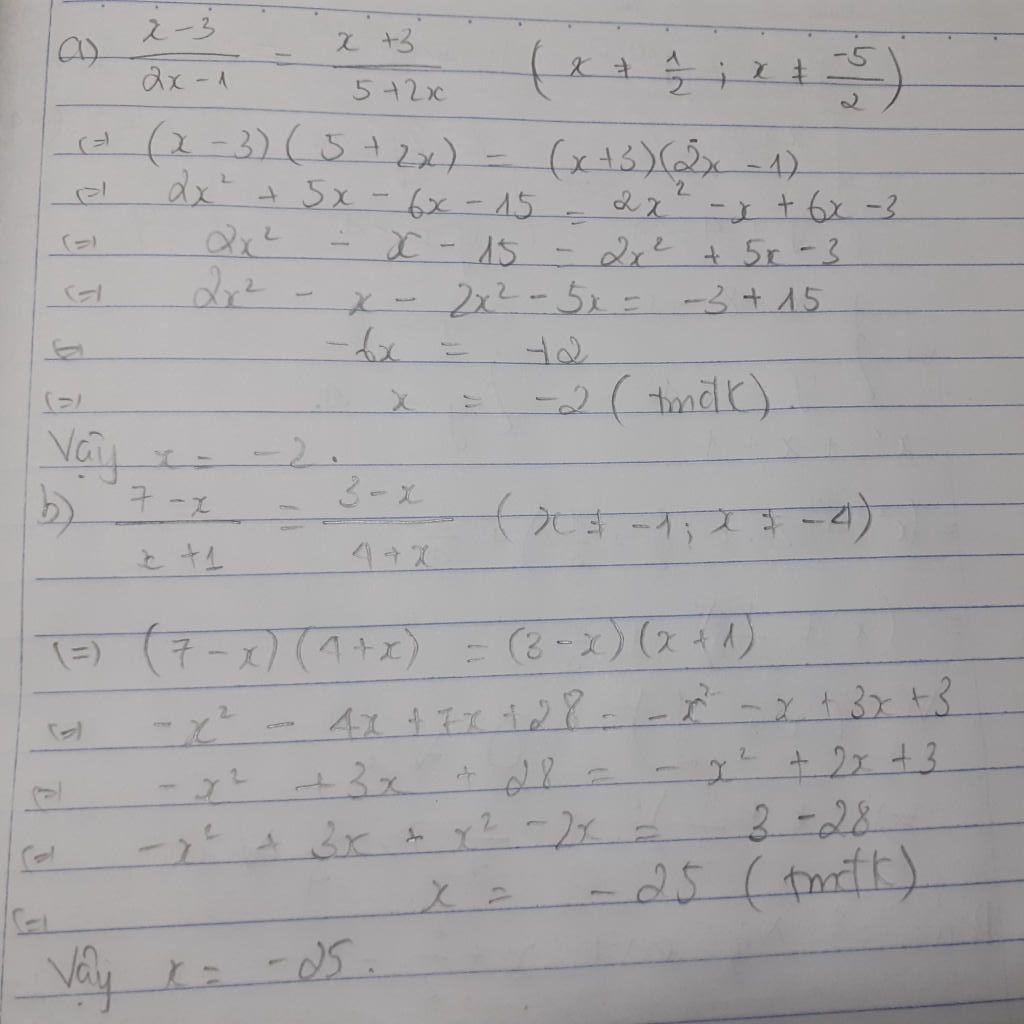 a) (x-3)/(2x-1) = (x+3)/(5+2x) (x ≠ 1/2 ; x ≠ -5/2)
(=) (x-3)(5+2x) = (x+3)(2x-1)
(=) 2x² + 5x - 6x - 15 = 2x² - x + 6x - 3
(=) 2x² - x - 15 = 2x² + 5x - 3
(=) 2x² - x - 2x² - 5x = -3 + 15
(=) -6x = 12
(=) x = -2 (tmđk)
Vậy x = -2.
b) (7-x)/(x+1) = (3-x)/(4+x) (x ≠ -1; x ≠ -4)
(=) (7-x)(4+x) = (3-x)(x+1)
(=) -x² - 4x + 7x + 28 = -x² - x + 3x + 3
(=) -x² + 3x + 28 = -x² + 2x + 3
(=) -x² + 3x + x² - 2x = 3 - 28
(=) x = -25 (tmđk)
Vậy x = -25.